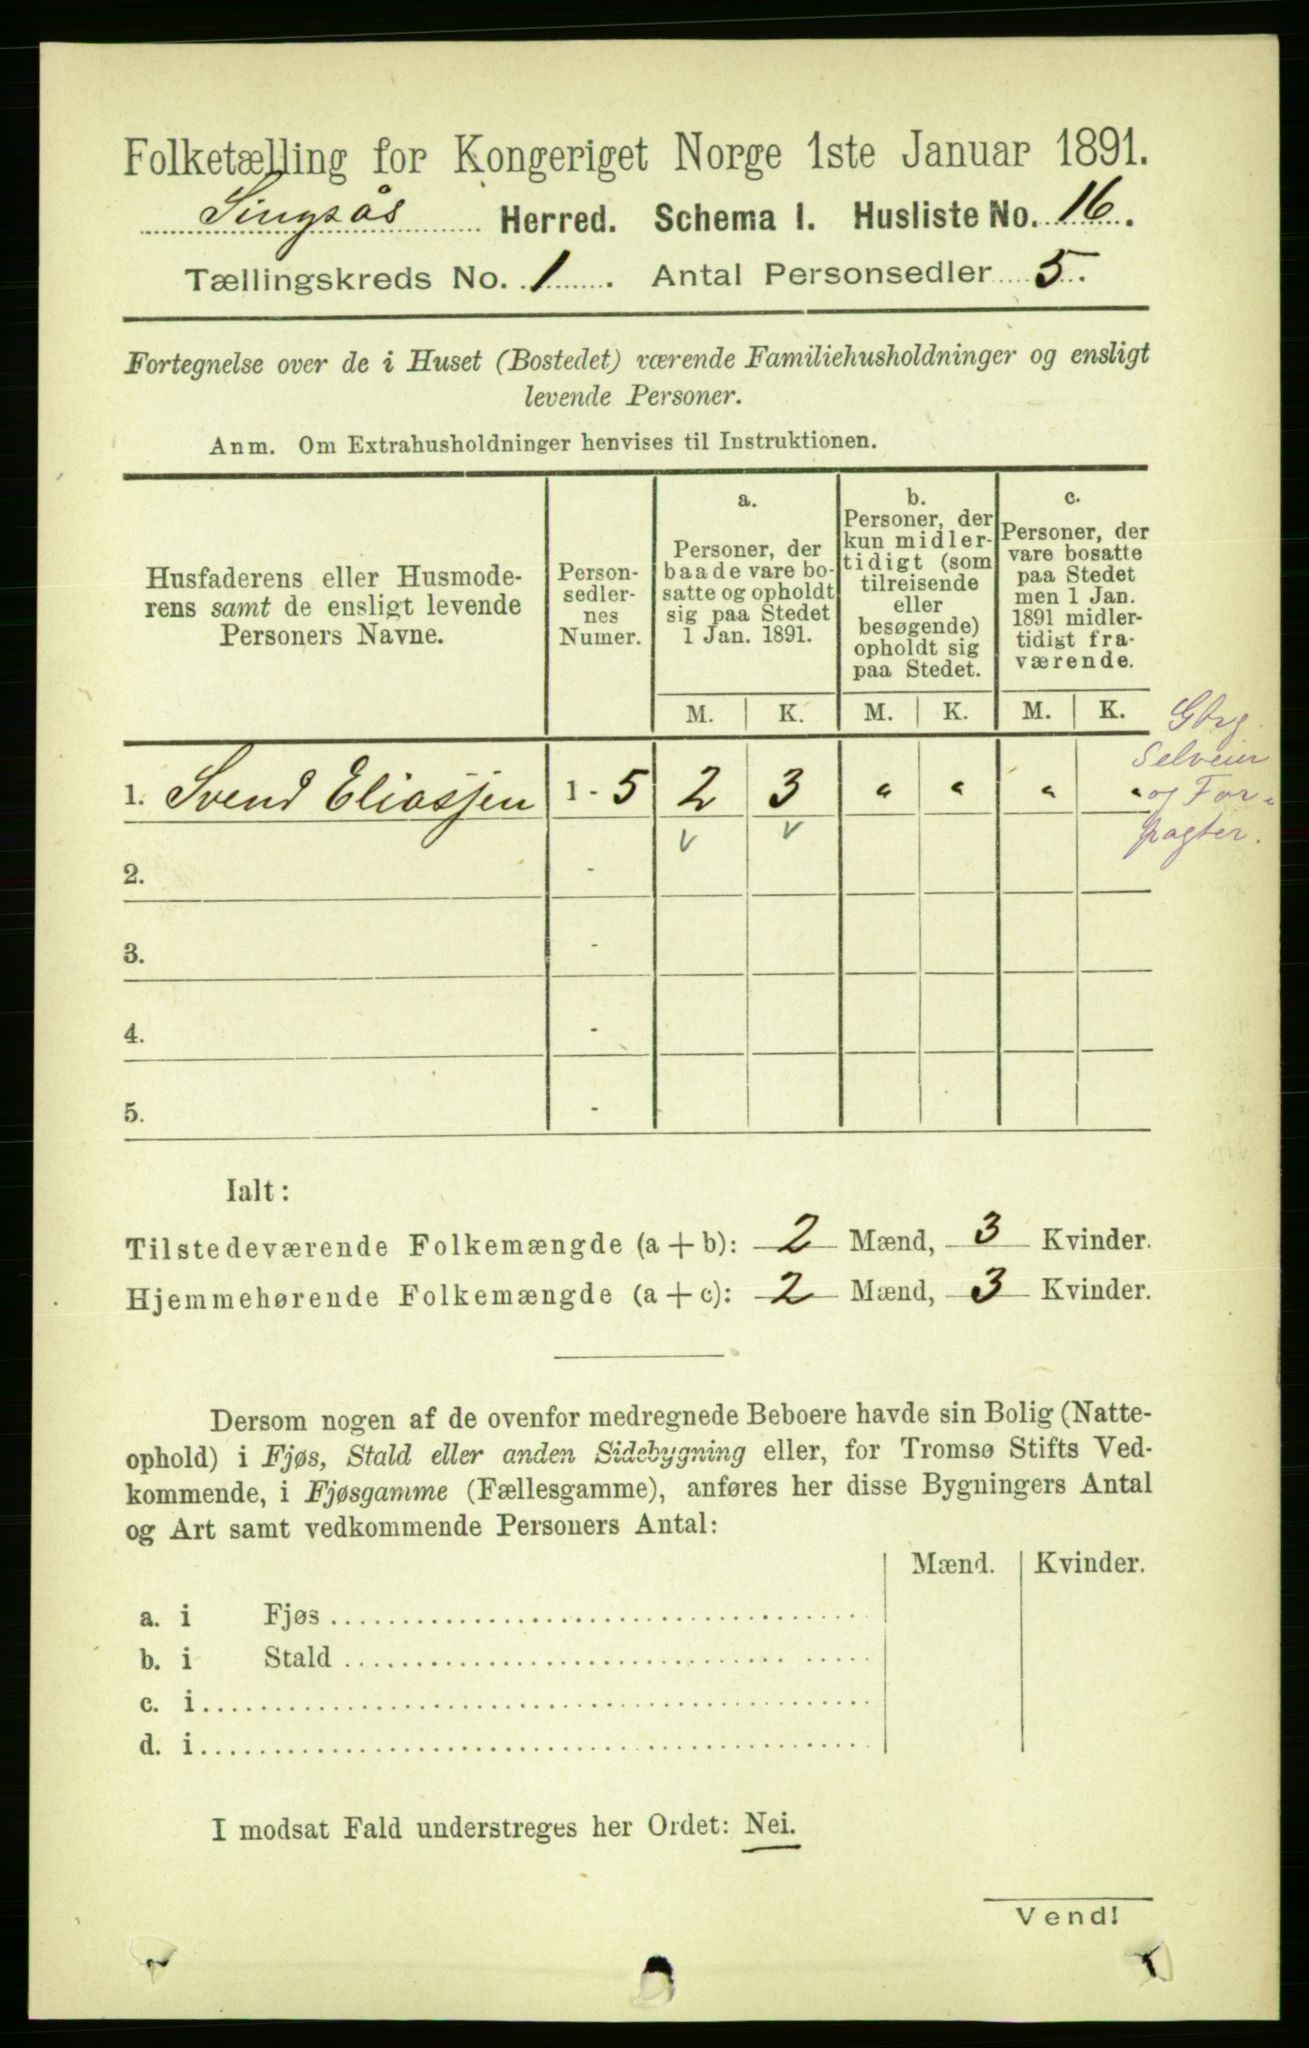 Folketælling for Kongeriget Norge 1ste Januar 1891.
Singsås Herred. Schema I. Husliste No. 16.
Tællingskreds No. 1. Antal Personsedler 5.
Fortegnelse over de i Huset (Bostedet) værende Familiehusholdninger og ensligt
levende Personer.
Anm. Om Extrahusholdninger henvises til Instruktionen.
Husfaderens eller Husmode-
rens samt de ensligt levende
Personers Navne.
Person-
sedler-
nes
Numer.
a.
Personer, der
baade vare bo-
satte og opholdt
sig paa Stedet
1 Jan. 1891.
b.
Personer, der
kun midler-
tidigt (som
tilreisende
eller
besøgende)
opholdt sig
paa Stedet.
c.
Personer, der
vare bosatte
paa Stedet
men 1 Jan.
1891 midler-
tidigt fra-
værende.
M. K. M. K. M. K.
Gbrg.
Selveier
og For-
pagter.
1. Svend Eliassen 1 - 5 2 3 " " " "
v v
2. -
3. -
4. -
5. -
Ialt:
Tilstedeværende Folkemængde (a + b): 2 Mænd, 3 Kvinder.
Hjemmehørende Folkemængde (a + c): 2 Mænd, 3 Kvinder.
Dersom nogen af de ovenfor medregnede Beboere havde sin Bolig (Natte-
ophold) i Fjøs, Stald eller anden Sidebygning eller, for Tromsø Stifts Ved-
kommende, i Fjøsgamme (Fællesgamme), anføres her disse Bygningers Antal
og Art samt vedkommende Personers Antal:
Mænd. Kvinder.
a. i Fjøs
b. i Stald
c. i
d. i
I modsat Fald understreges her Ordet: Nei.
Vend!